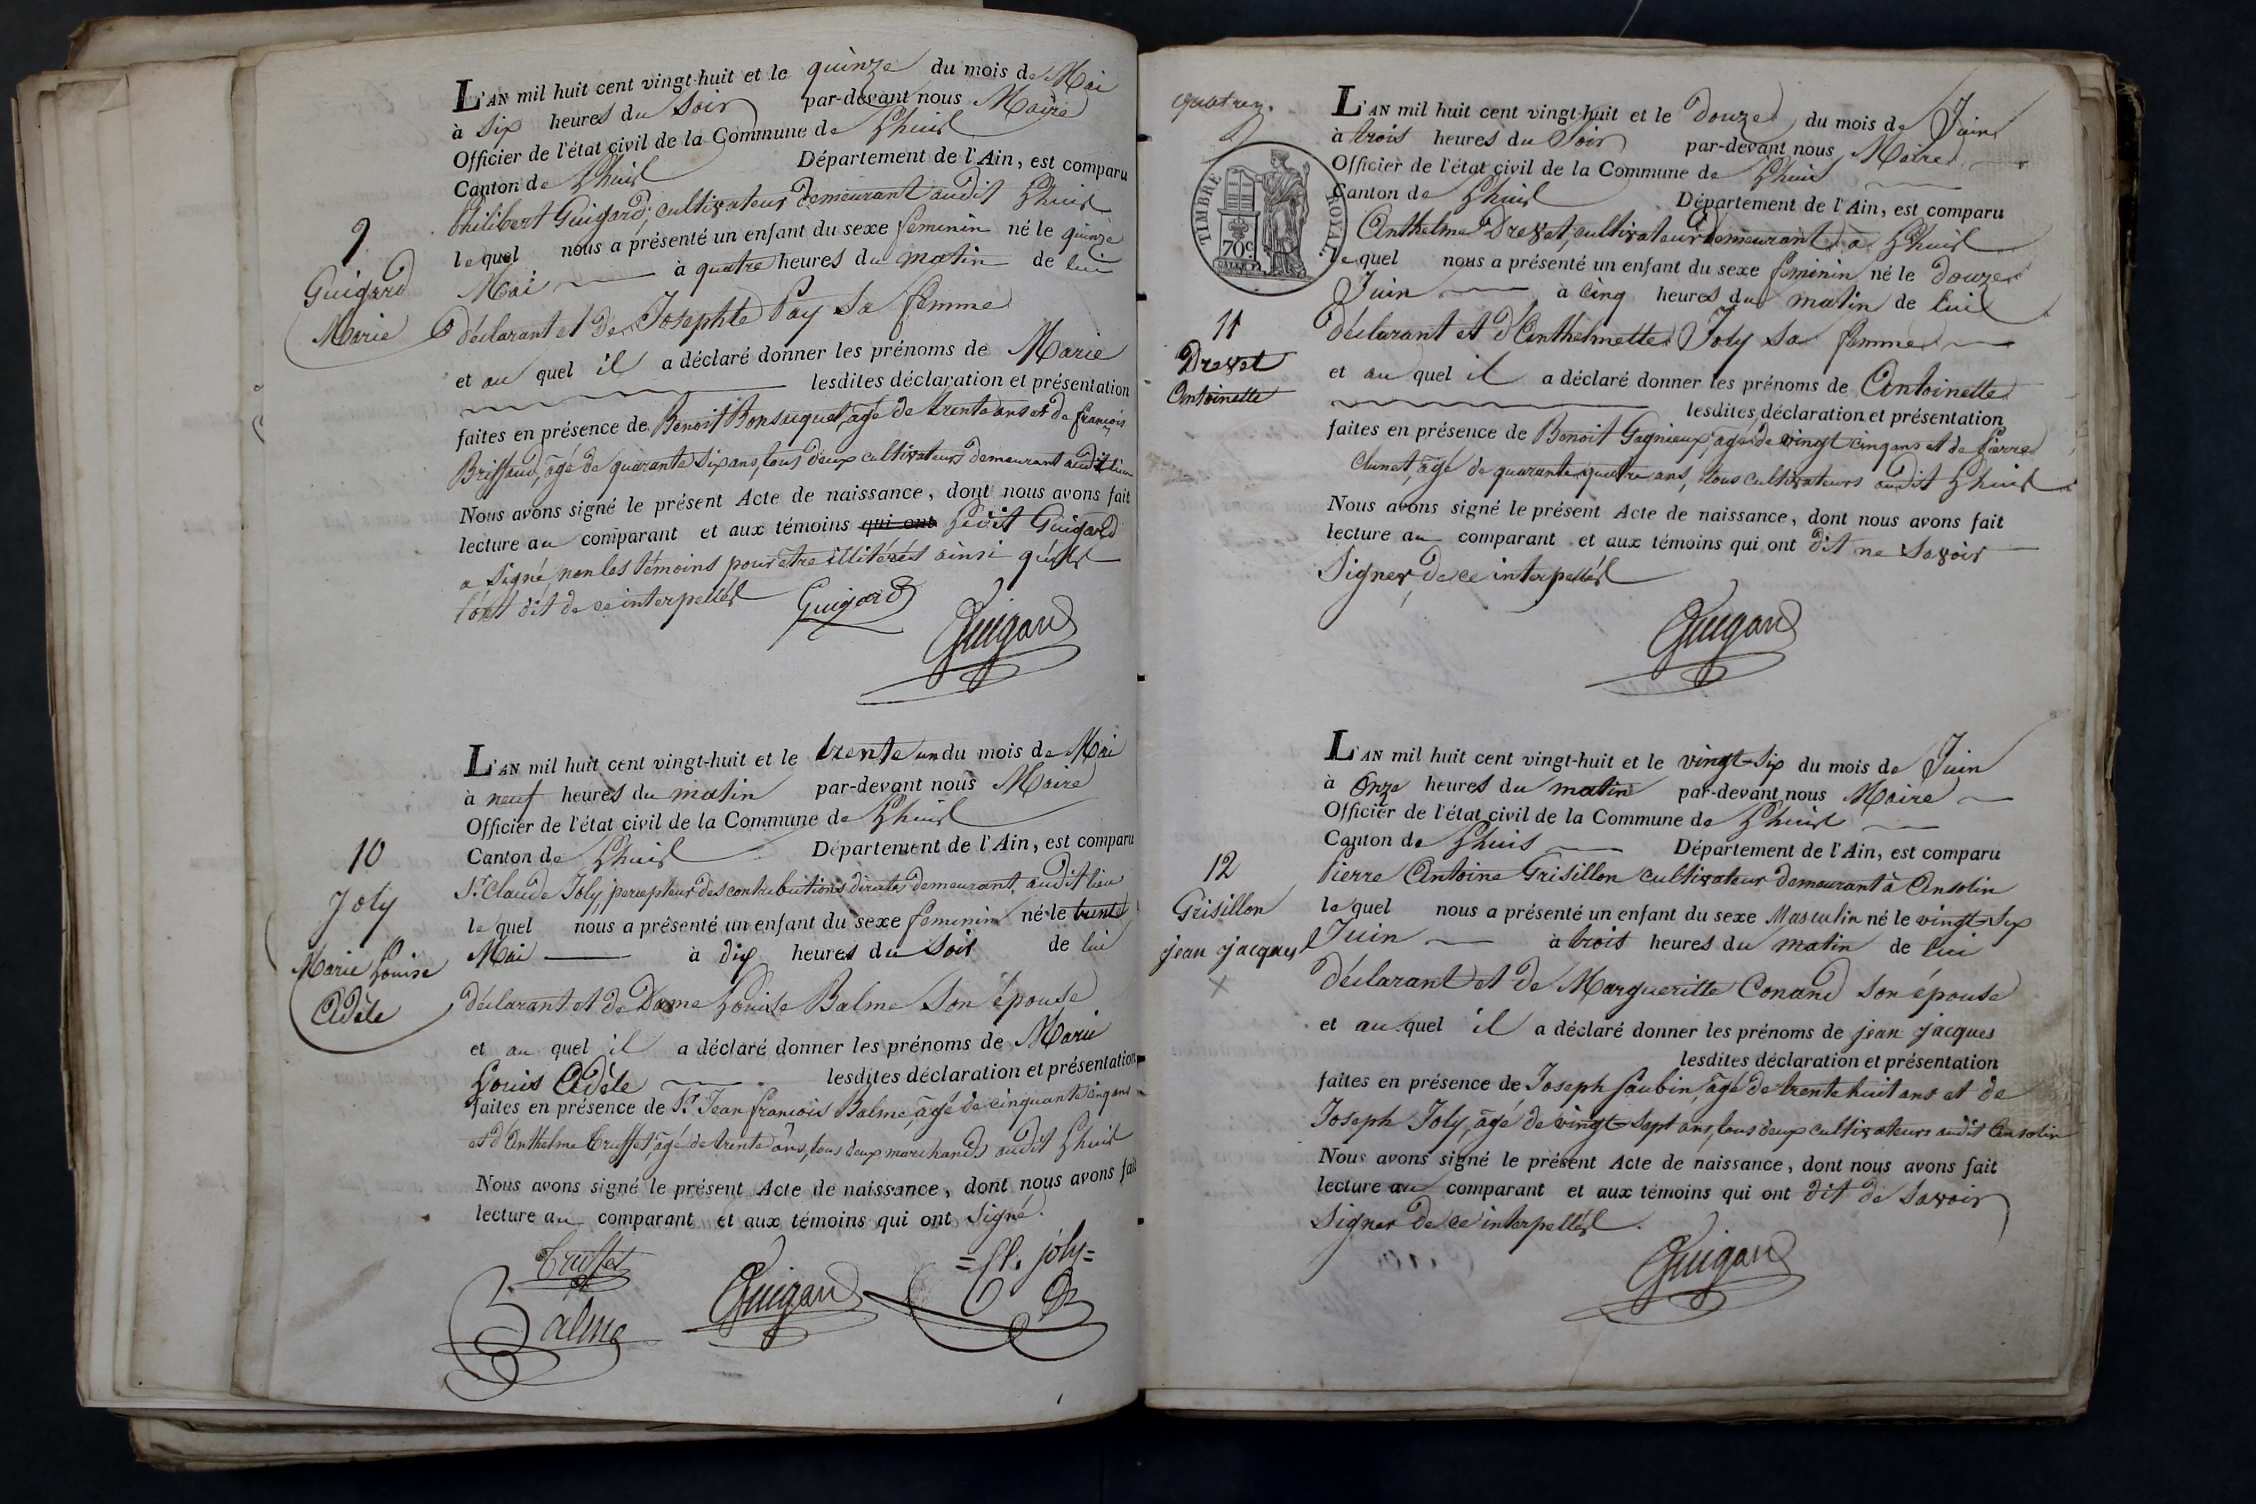 L'AN mil huit cent vingt-huit et le quinze du mois de Mai
à Six heures du Soir par-devant nous Maire
Officier de l'état civil de la Commune de Lhuis
Canton de Lhuis Département de l'Ain, est comparu
Philibert Guigard, cultivateur demeurant audit Lhuis
lequel nous a présenté un enfant du sexe feminin né le quinze
Mai à quatre heures du matin de lui
déclarant et de Josephte Pay Sa femme
et au quel il a déclaré donner les prénoms de Marie
lesdites déclaration et présentation
faites en présence de Benoit Bonsuquet, agé de trente ans et de françois
Briffaud, agé de quarante Six ans, tous deux cultivateurs demeurant audit lieu
Nous avons signé le présent Acte de naissance, dont nous avons fait
lecture au comparant et aux témoins qui ont Ledit Guigard
a Signé, non les témoins pour etre illitérés ainsi qu'ils
l'ont dit de ce interpellés
Guigard
Guigard
9
Guigard
Marie
L'AN mil huit cent vingt-huit et le trente un du mois de Mai
à neuf heures du matin par-devant nous Maire
Officier de l'état civil de la Commune de Lhuis
Canton de Lhuis Département de l'Ain, est comparu
Sr. Claude Joly, percepteur des contributions directes demeurant audit lieu
lequel nous a présenté un enfant du sexe feminin né le trente
Mai à dix heures du Soir de lui
déclarant et de Dame Louise Balme Son épouse
et au quel il a déclaré donner les prénoms de Marie
Louis Adèle lesdites déclaration et présentation
faites en présence de Sr. Jean francois Balme, agé de cinquante cinq ans
et d'Anthelme Truffet, agé de trente ans, tous deux marchands audit Lhuis
Nous avons signé le présent Acte de naissance, dont nous avons fait
lecture au comparant et aux témoins qui ont Signé.
Truffet
=Cl. joly=
Guigard
Balme
10
Joly
Marie Louise
Adèle
quatre
TIMBRE ROYAL
70c
L'AN mil huit cent vingt-huit et le Douze du mois de Juin
à trois heures du Soir par-devant nous Maire
Officier de l'état civil de la Commune de Lhuis
Canton de Lhuis Département de l'Ain, est comparu
Anthelme Drevet, cultivateur demeurant à Lhuis
lequel nous a présenté un enfant du sexe feminin né le douze
Juin à cinq heures du matin de lui
déclarant et d'Anthelmette Joly Sa femme
et au quel il a déclaré donner les prénoms de Antoinette
lesdites déclaration et présentation
faites en présence de Benoit Gagnieux, agé de vingt cinq ans et de Pierre
Cunet, agé de quarante quatre ans, tous cultivateurs audit Lhuis
Nous avons signé le présent Acte de naissance, dont nous avons fait
lecture au comparant et aux témoins qui ont dit ne Savoir
Signer, de ce interpellés
Guigard
11
Drevet
Antoinette
L'AN mil huit cent vingt-huit et le vingt-Six du mois de Juin
à Onze heures du matin par-devant nous Maire
Officier de l'état civil de la Commune de Lhuis
Canton de Lhuis Département de l'Ain, est comparu
Pierre Antoine Grisillon cultivateur demeurant à Ansolin
lequel nous a présenté un enfant du sexe Masculin né le vingt-Six
Juin à trois heures du matin de lui
déclarant et de Margueritte Conand Son épouse
et au quel il a déclaré donner les prénoms de jean jacques
lesdites déclaration et présentation
faites en présence de Joseph Gaubin, agé de trente huit ans et de
Joseph Joly, agé de vingt-Sept ans, tous deux cultivateurs audit Ansolin
Nous avons signé le présent Acte de naissance, dont nous avons fait
lecture au comparant et aux témoins qui ont dit de Savoir
Signer de ce interpellés.
Guigard
12
Grisillon
jean jacques